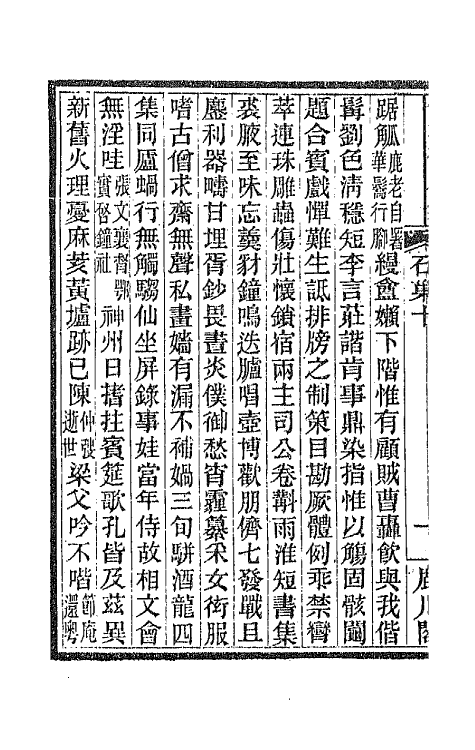 踞觚鹿老自署華鬘行腳縵龕嬾下階惟有顧賊曹轟飲與我偕
髯劉色淸穩短李言莊諧肯事鼎染指惟以觴固骸闖
題合賓戲憚難生詆排牓之制策目勘厥體例乖禁臠
萃連珠雕蟲傷壯懷鎖宿兩主司公卷斠雨淮短書集
裘腋至味忘羹豺鐘鳴迭臚唱壺博歡朋儕七發戰且
鏖利器疇甘埋胥鈔畏晝炎僕御愁宵霾摹釆女衒服
嗜古僧求齋無聲私畫嬙有漏不補媧三旬騈酒龍四
集同廬蝸行無觸騶仙坐屏錄事娃當年侍故相文會
無淫哇張文襄督鄂實啓鐘社神州日搘拄賓筵歌孔皆及茲異
新舊火理憂麻荄黃壚跡已陳仲弢逝世梁父吟不喈節庵還粵